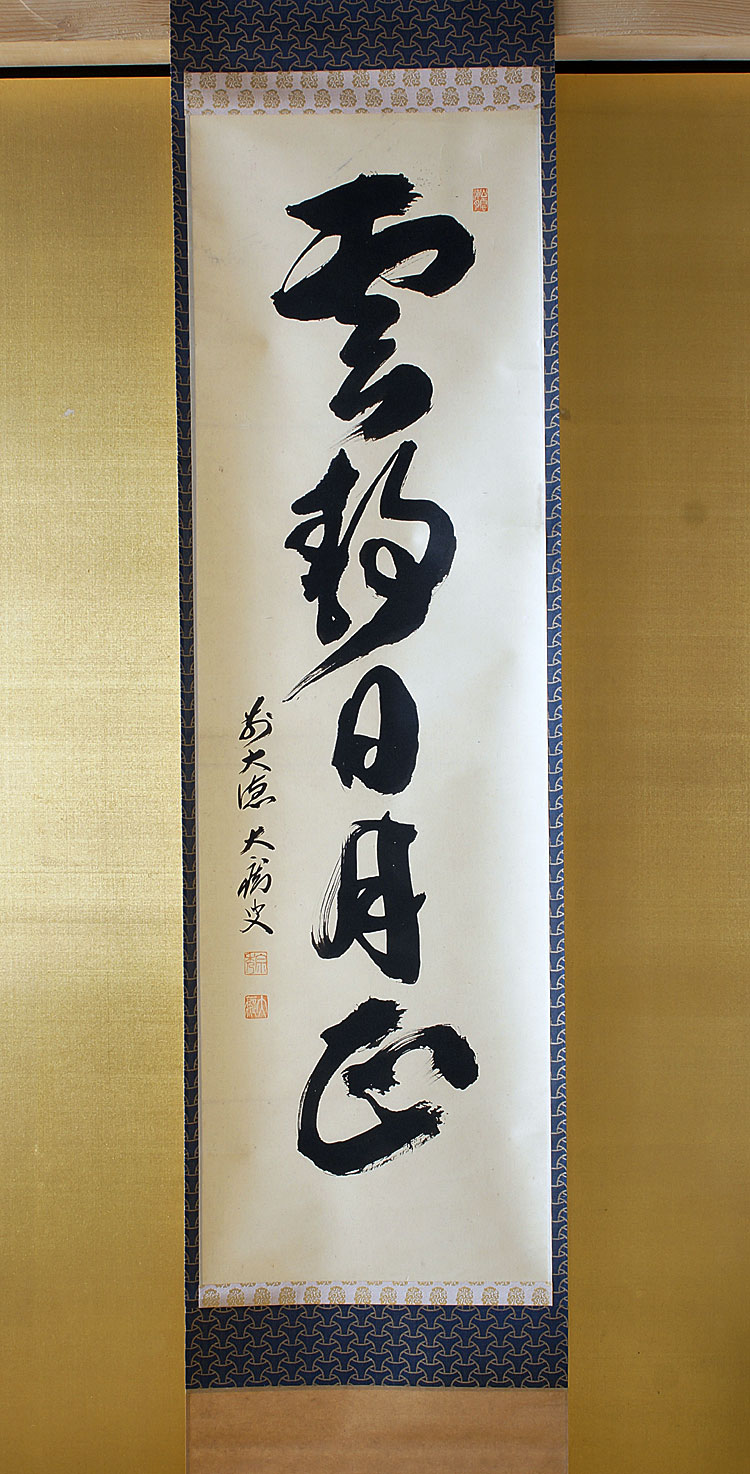 雲静日月正
前大徳 大龝叟